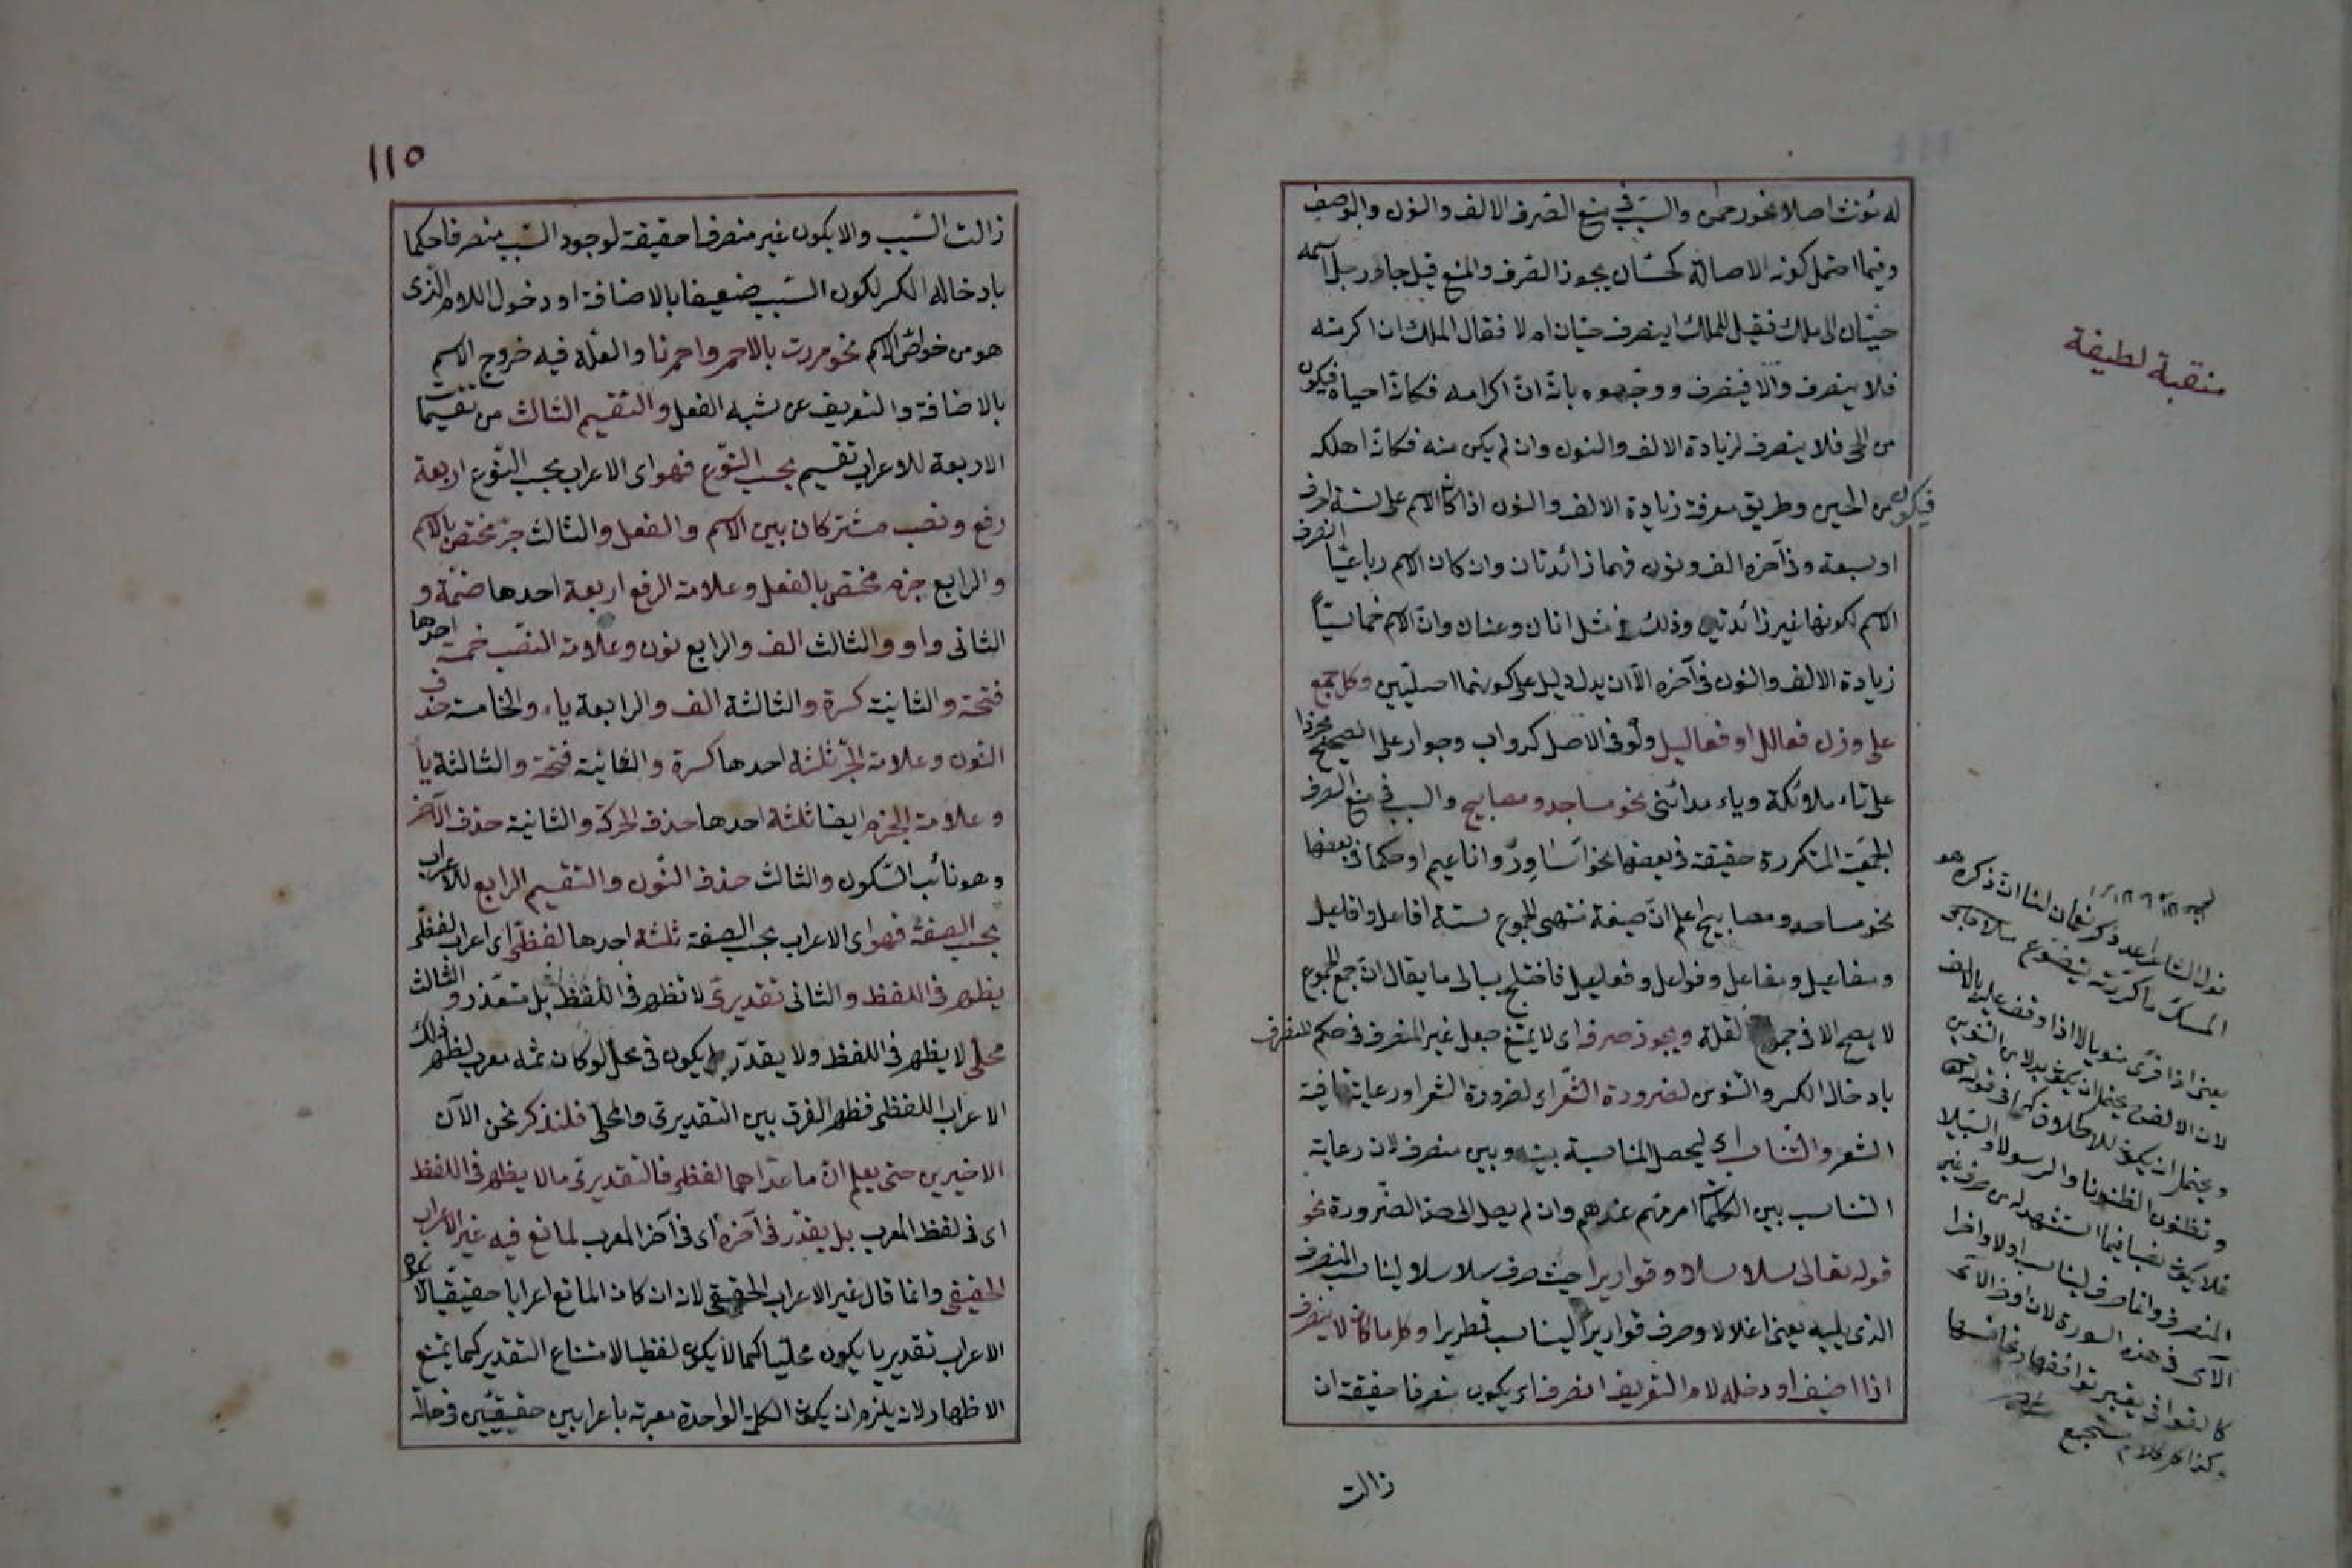 له مؤنث اصلا نحو رحمن والسبب فى منع الصرف الالف والنون والوصف
وفيما احتمل كونه الاصالة كحسّان يجوز الصرف والمنع قيل جاء رجل اسمه
حيّان الى ملك فقيل للملك اينصرف حيّان ام لا فقال الملك ان اكرمته
فلا ينصرف والّا فينصرف ووجّهوه بانّه ان اكرامه فكانّه احياه فيكون
من الحى فلا ينصرف لزيادة الالف والنون وان لم يكن منه فكانّه اهلكه
فيكون من الحين وطريق معرفة زيادة الالف والنون اذا كان الاسم على ستة احرف
او سبعة وفى آخره الف ونون فهما زائدتان وان كان الاسم رباعيّا انصرف
الاسم لكونهما غير زائدتين وذلك فى مثل انان وعنان وان الاسم خماسيّاً
زيادة الالف والنون فى آخره الّا ان يدل دليل على كونهما اصليّتين وكل جمع
على وزن فعالل او فعاليل ولو فى الاصل كدواب وجوار على الصحيح
على تاء ملائكة وياء مدائنى نحو مساجد ومصابيح والسبب فى منع الصرف
الجمعيّة المتكررة حقيقة فى بعضها نحو اسَاوِرَ واناعيم او حكما فى بعضها
نحو مساجد ومصابيح اعلم انّ صيغة منتهى الجموع ستة افاعل وافاعيل
ومفاعيل ومفاعل وفواعل وفعاليل ما يقال انّ جمع الجموع
لا يصح الا فى جموع القلة ويجوز صرفه اى لا يمتنع جعل غير المنصرف فى حكم المنصرف
بادخال الكسر والتنوين لضرورة الشّعر اى لضرورة الشعر او رعاية قافية
الشعر والتناسب اى ليحصل المناسبة بينه وبين منصرف لان رعاية
التناسب بين الكلمات امر مهم عندهم وان لم يصل الى حد الضّرورة نحو
قوله تعالى سلاسلا وقواريرا حيث صرف سلاسلا ليناسب المنصرف
الذى يليه يعنى اغلالا وصرف قواريرا ليناسب قمطريرا وكل ما كان لا ينصرف
اذا اضيف او دخله لام التعريف انصرف اى يكون منصرفا حقيقة ان
زالت
منقبة لطيفة
قول الشاعر اعد ذكر نعمان لنا ان ذكره هو
المسك ما كررته يتضوع
يعنى اذا قرئ منونا لا اذا وقف عليه بالالف
لان الالف يحتمل ان يكون بدلا من التنوين
ويحتمل ان يكون للاطلاق كما فى قوله
وتظنون الظنونا والرسولا والسبيلا
كالقوافى يعتبر توافقها
وكذا كل كلام مسجع
١١٥
زالت السّبب والا يكون غير منصرف حقيقة لوجود السّبب منصرفا حكما
بادخاله الكسر لكون السّبب ضعيفا بالاضافة او دخول اللام الّذى
هو من خواصّ الاسم نحو مررت بالاحمر واحمرنا والعلّة فيه خروج الاسم
بالاضافة والتعريف عن شبه الفعل والتقسيم الثالث من تقسيمات
الاربعة للاعراب تقسيم بحسب النّوع فهو اى الاعراب بحسب النّوع اربعة
رفع ونصب مشتركان بين الاسم والفعل والثالث جرّ مختص بالاسم
والرابع جزم مختص بالفعل وعلامة الرفع اربعة احدها ضمّة و
الثانى واو والثالث الف والرابع نون وعلامة النّصب خمسة احدها
فتحة والثانية كسرة والثالثة الف والرابعة ياء والخامسة حذف
النّون وعلامة الجرّ ثلثة احدها كسرة والثانية فتحة والثالثة يا
وعلامة الجزم ايضا ثلثة احدها حذف الحركة والثانية حذف الآخر
وهو نائب السّكون والثالث حذف النّون والتقسيم الرابع للاعراب
بحسب الصفة فهو اى الاعراب بحسب الصفة ثلثة احدها لفظىّ اى اعراب لفظى
يظهر فى اللفظ والثانى تقديرىّ لا تظهر فى اللّفظ بل متعذر والثالث
محلّى لا يظهر فى اللفظ ولا يقدّر بل يكون فى محل لو كان ثمه معرب لظهر ذلك
الاعراب اللفظى فظهر الفرق بين التقديرى والمحلّى فلنذكر نحن الآن
الاخيرين حتى يعلم ان ما عداهما لفظى فالتقديرى ما لا يظهر فى اللفظ
اى فى لفظ المعرب بل يقدّر فى آخره اى فى آخر المعرب لمانع فيه غير الاعراب
الحقيقى وانما قال غير الاعراب الحقيقى لان ان كان المانع اعرابا حقيقيّا
الاعراب تقديريا يكون محليّا كما لا يكون لفظيا لامتناع التقدير كما يمتنع
الاظهار لانه يلزم ان يكون الكلمة الواحدة معربة باعرابين حقيقيّين فى حالة